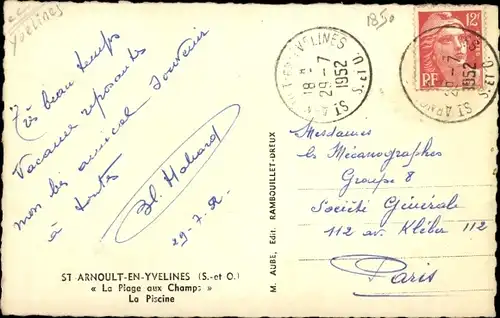 cc
Yvelines
1850
Très beau temps
Vacances reposantes
mon bien amical souvenir
à toutes
29-7-52
ST ARNOULT-EN-YVELINES (S.-et O.)
« La Plage aux Champs »
La Piscine
M. AUBE, Edit. RAMBOUILLET-DREUX
18 H
29-7
1952
S. ET O.
12F
RF
ST ARNOULT
29-7
1952
S. ET O.
Messdames
les Mécanographes
Groupe 8
Société Générale
112 av. Kléber 112
Paris